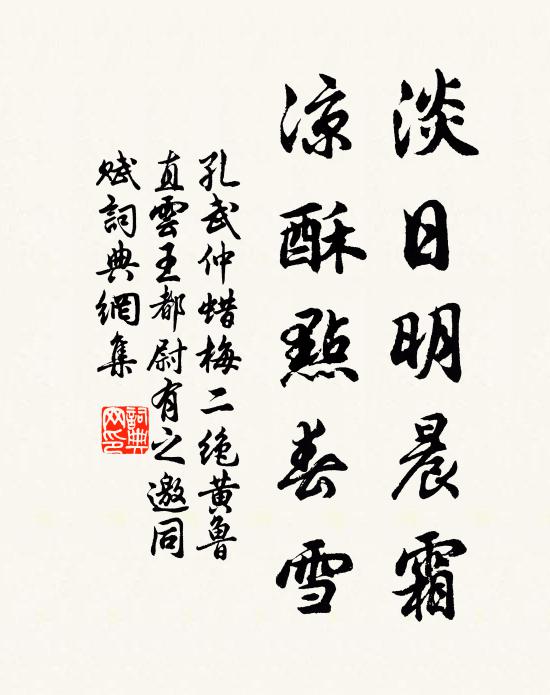 淡日明晨霜
凉酥點春雪
孔武仲蜡梅二绝黄魯
直雲王都尉有之邀同
赋詞典網集
詞典
网印